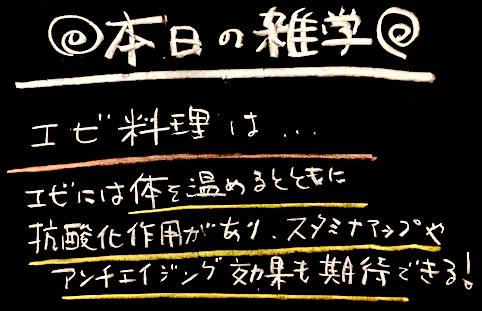 本日の雑学
エビ料理は...
エビには体を温めるとともに
抗酸化作用があり、スタミナアップや
アンチエイジング効果も期待できる!